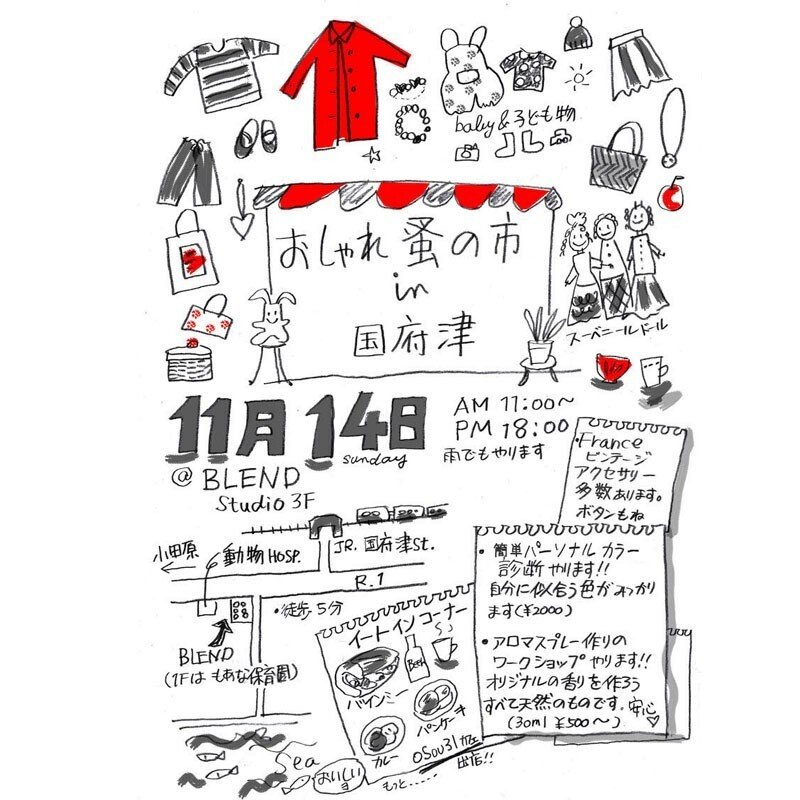 baby&子ども物
おしゃれ蚤の市
in
国府津
スーベニールドール
11月14日
sunday
AM 11:00~
PM 18:00
雨でもやります
@ BLEND
Studio 3F
・France
ビンテージ
アクセサリー
多数あります。
ボタンもね
小田原
動物HOSP.
JR.国府津St.
R.1
・徒歩5分
BLEND
(1Fはもあな保育園)
Sea
・簡単パーソナルカラー
診断やります!!
自分に似合う色がみつかり
ます(¥2000)
・アロマスプレー作りの
ワークショップやります!!
オリジナルの香りを作ろう
すべて天然のものです。安心
(30ml ¥500~)
イートインコーナー
Beer
バインミー
パンケーキ
カレー
出店!!
おいしいョ
もっと……